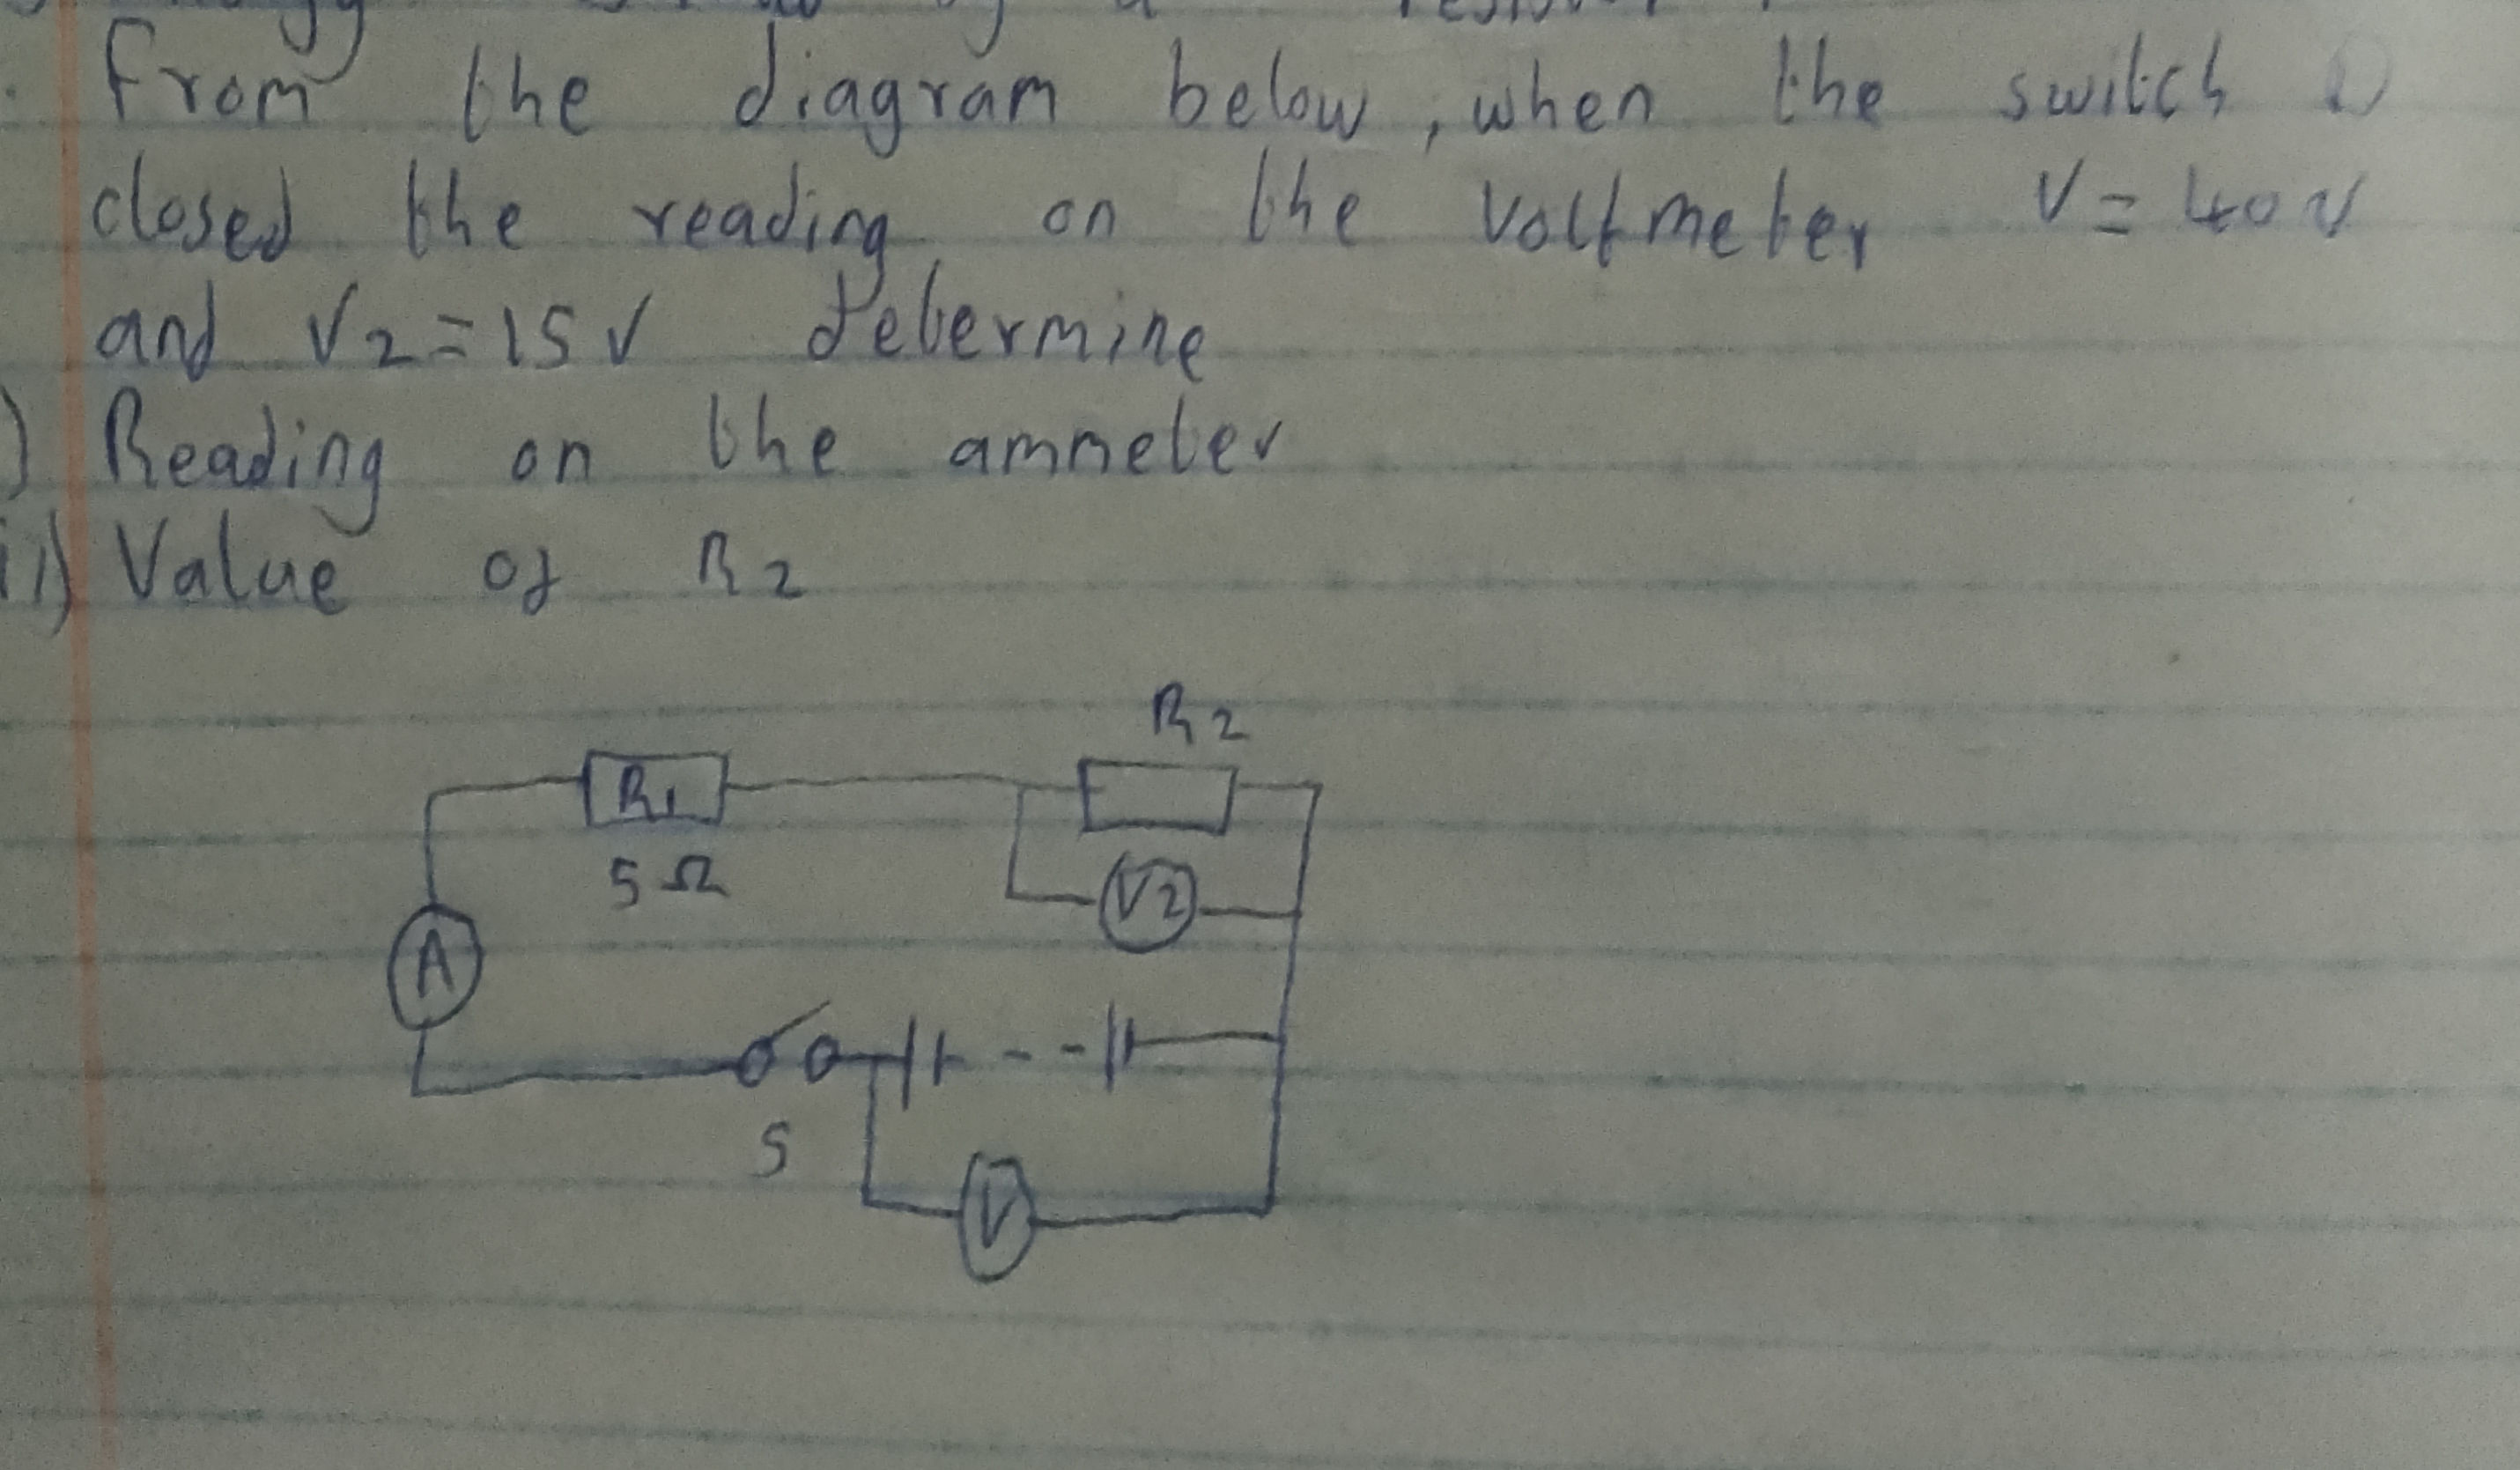 From the diagram below, when the switch
closed the reading on the voltmeter V = 40V
and V2 = 15V determine
) Reading on the ammeter
ii) Value of R2
R2
R1
5 Ω
V2
A
S
V